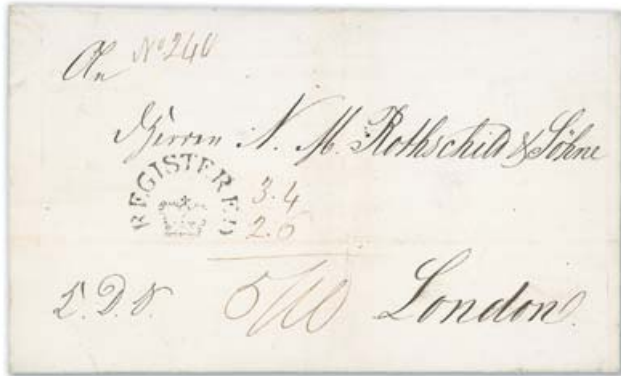 An No 240
Herren N. M. Rothschild & Söhne
REGISTERED
3.4
2.6
5/10
London.